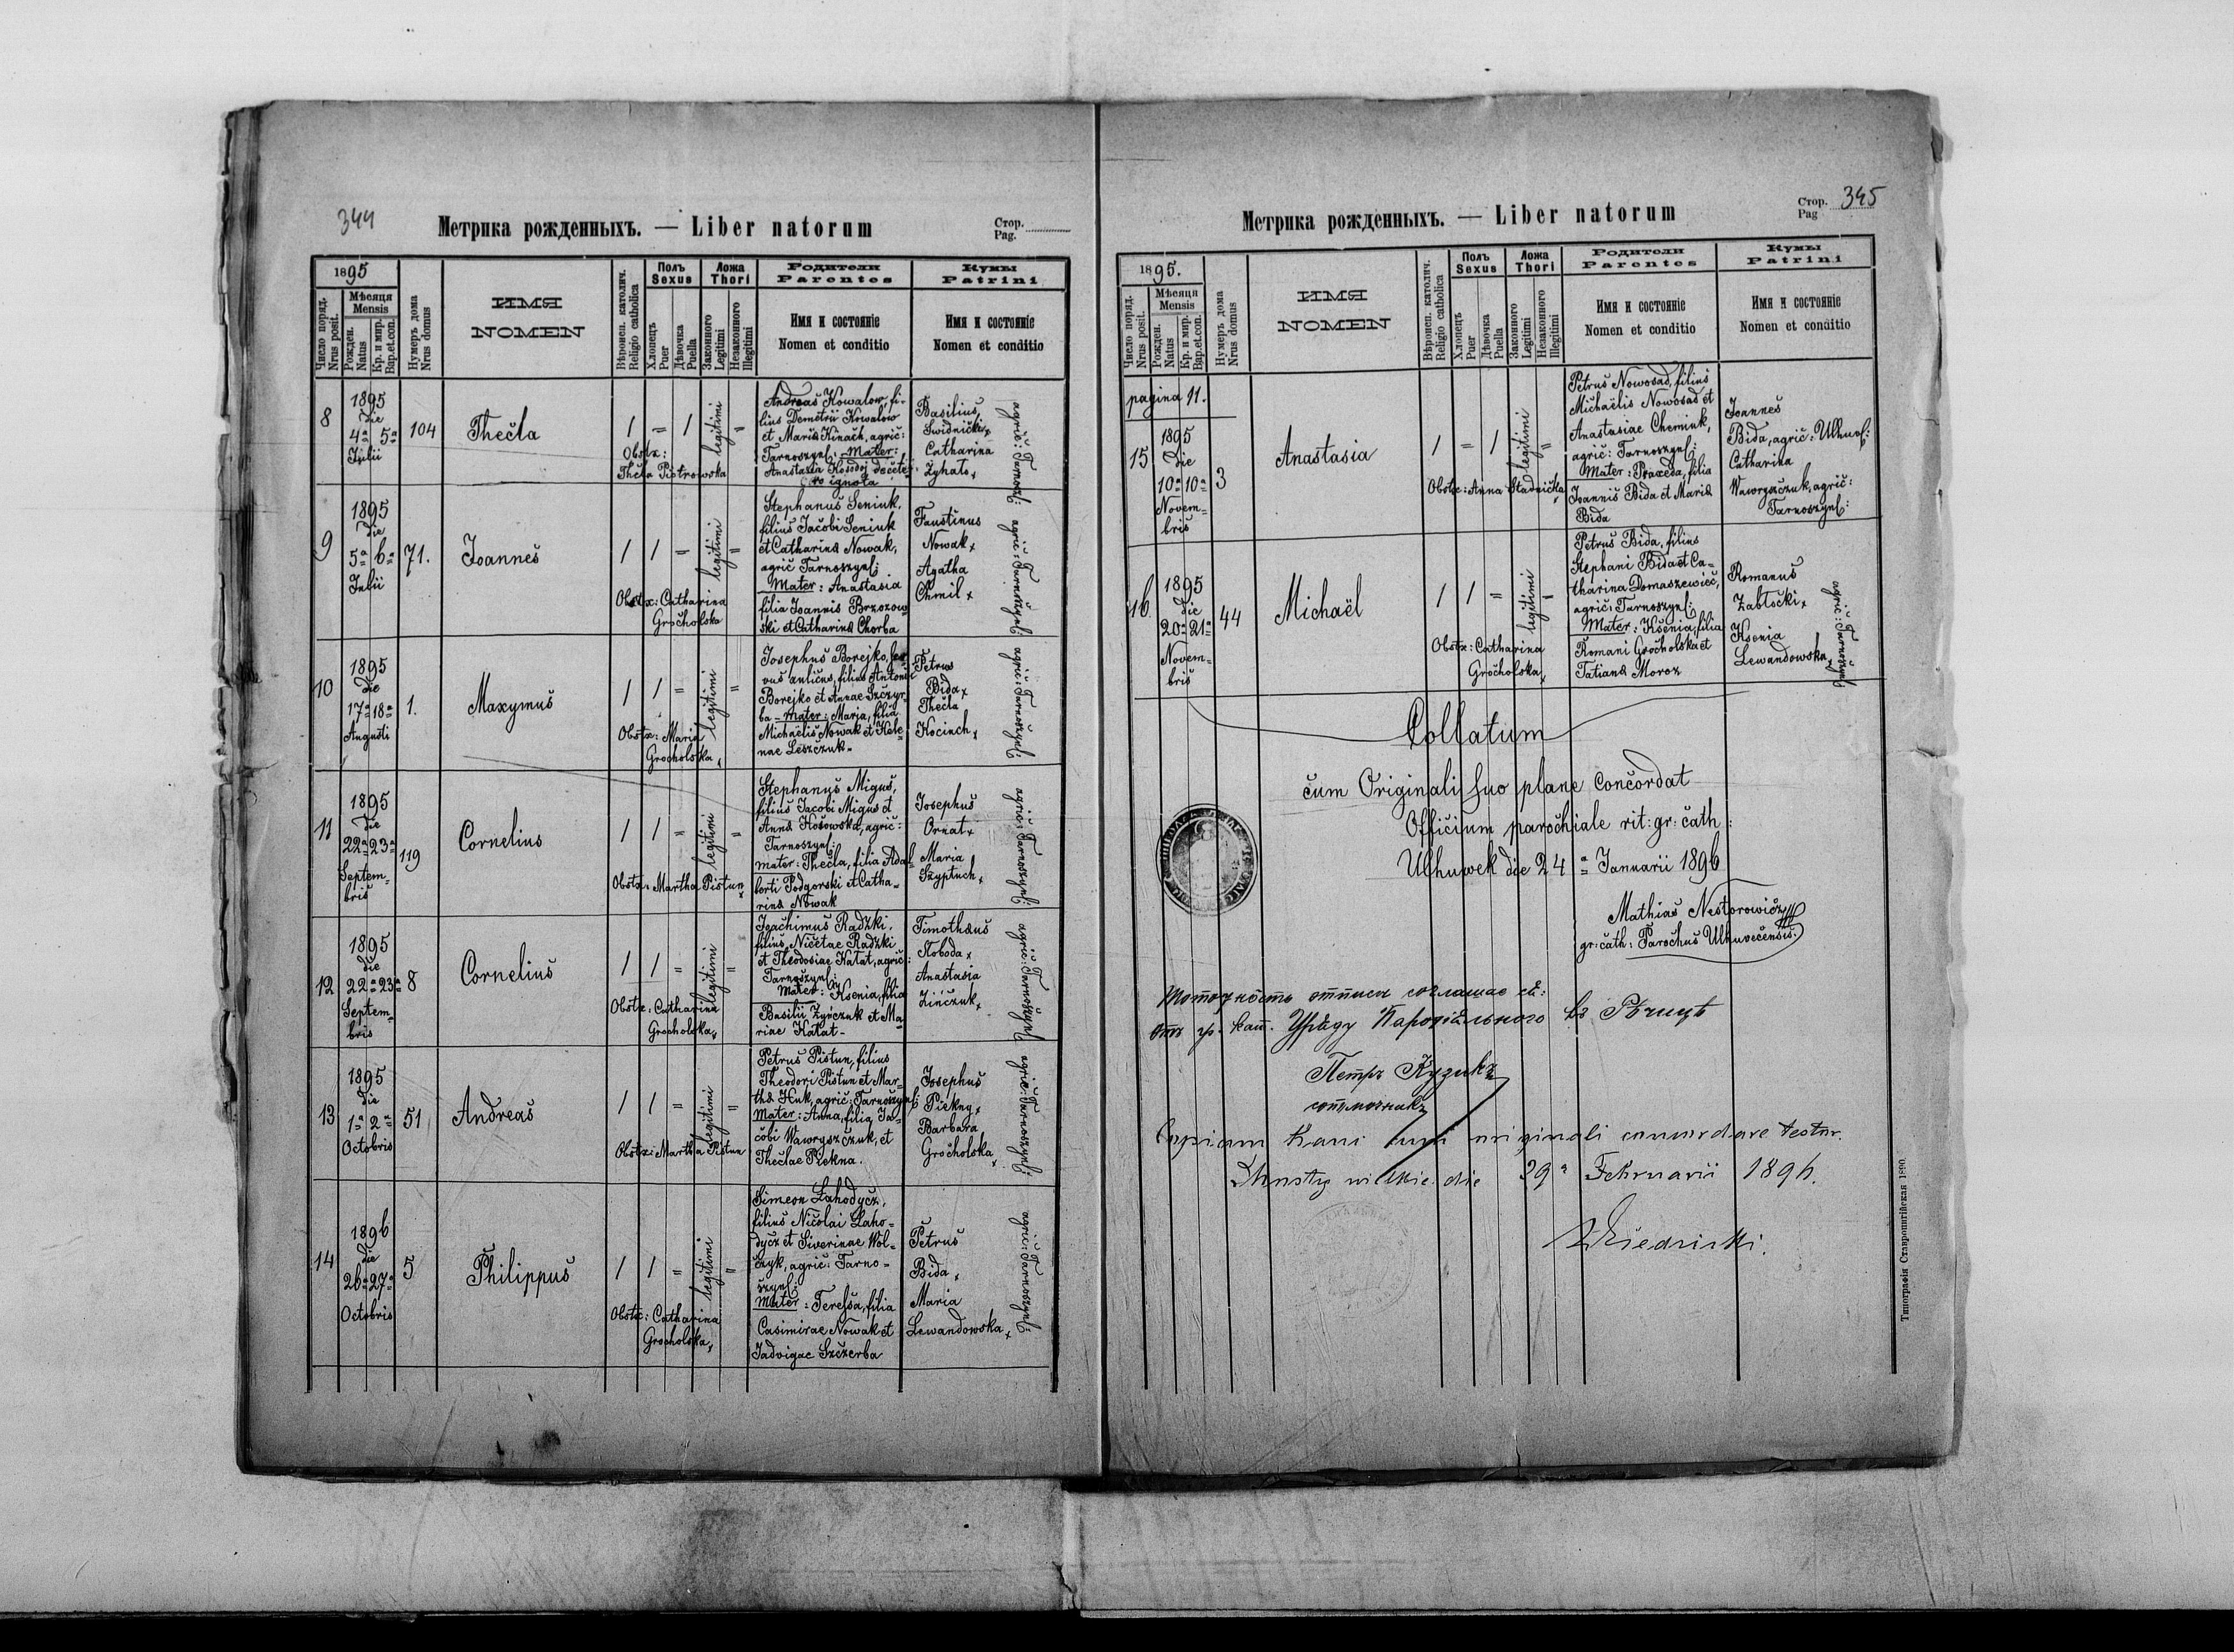 344
Метрика рожденныхъ. — Liber natorum
Стор.
Pag.
1895
Число поряд.
Nrus posit.
Мѣсяця
Mensis
Рожден.
Natus
Кр. и мир.
Bap.et.con.
Нумеръ дома
Nrus domus
ИМЯ
NOMEN
Вѣроисп. католич.
Religio catholica
Полъ
Sexus
Хлопецъ
Puer
Дѣвочка
Puella
Ложа
Thori
Законного
Legitimi
Незаконного
Illegitimi
Родители
Parentes
Имя и состоянie
Nomen et conditio
Кумы
Patrini
Имя и состоянie
Nomen et conditio
8
1895
die
4ª 5ª
Julii
104
Thečla
1 = 1 legitimi =
Obstx:
Thečla Piotrowska
Andreas Kowalow, fi-
lius Demetrii Kowalow
et Maria Kinach, agrič:
Tarnoszyn: Mater:
Anastasia Kosodoj
ignota
Basilius
Swidnički x
Catharina
Żyhało x
agrič: Tarnosz:
9
1895
die
5ª 6ª
Julii
71.
Joanneš
1 1 = legitimi =
Obstx: Catharina
Gročholska
Stephanus Seniuk,
filius Jačobi Seniuk
et Catharina Nowak,
agrič Tarnoszyn:
Mater: Anastasia
filia Joannis Brzozow
ski et Catharina Chorba
Faustinus
Nowak x
Agatha
Chmil x
agrič: Tarnoszyn:
10
1895
die
17ª 18ª
Augusti
1.
Maxymuš
1 1 = legitimi =
Obstx: Maria
Grocholska
Josephus Borejko,
vus aulicus, filius Antonii
Borejko et Annae Szczyr-
ba - mater: Maria, filia
Michaelis Nowak et Hele-
nae Leszczuk -
Petrus
Bida x
Thečla
Kocinch x
agrič: Tarnoszyn:
11
1895
die
22ª 23ª
Septem-
bris
119
Cornelius
1 1 = legitimi =
Obstx: Martha Pistun
Stephanus Miguš,
filius Jacobi Migus et
Anna Kosowska, agrič:
Tarnoszyn:
mater: Thečla, filia Adal-
berti Podgorski et Catha-
rina Nowak
Josephus
Ornat x
Maria
Szyptuch x
agrič: Tarnoszyn:
12
1895
die
22ª 23ª
Septem-
bris
8
Cornelius
1 1 = legitimi =
Obstx: Catharina
Grocholska
Joachimuš Radzki,
filius Ničetae Radzki
et Theodosiae Katat, agrič:
Tarnoszyn:
Mater: Ksenia, filia
Basilii Zyńczuk et Ma-
riae Katat -
Timothæus
Słoboda x
Anastasia
Zińczuk x
agrič: Tarnoszyn:
13
1895
die
1ª 2ª
Octobris
51
Andreas
1 1 = legitimi =
Obstx: Martha Pistun
Petruš Pistun, filius
Theodori Pistun et Mar-
tha Huk, agrič: Tarnoszyn:
Mater: Anna, filia Ja-
čobi Wawryszčzuk, et
Thečlae Piekna.
Josephus
Piekny x
Barbara
Gročholska x
agrič: Tarnoszyn:
14
1896
die
26ª 27ª
Octobris
5
Philippuš
1 1 = legitimi =
Obstx: Catharina
Grocholska
Simeon Łahodycz,
filius Ničolai Łaho-
dycz et Siverinae Wol-
čzyk, agrič: Tarno-
szyn:
Mater: Teressa, filia
Casimirae Nowak et
Jadvigae Szczerba
Petrus
Bida x
Maria
Lewandowska x
agrič: Tarnoszyn:
Метрика рожденныхъ. — Liber natorum
Стор.
Pag
345
1895.
Число поряд.
Nrus posit.
Мѣсяця
Mensis
Рожден.
Natus
Кр. и мир.
Bap.et.con.
Нумеръ дома
Nrus domus
ИМЯ
NOMEN
Вѣроисп. католич.
Religio catholica
Полъ
Sexus
Хлопецъ
Puer
Дѣвочка
Puella
Ложа
Thori
Законного
Legitimi
Незаконного
Illegitimi
Родители
Parentes
Имя и состоянie
Nomen et conditio
Кумы
Patrini
Имя и состоянie
Nomen et conditio
pagina 11.
15
1895
die
10ª 10ª
Novem-
bris
3
Anastasia
1 = 1 legitimi =
Obstx: Anna Stadnička
Petrus Nowosad, filius
Michaelis Nowosad et
Anastasiae Chemiuk,
agrič: Tarnoszyn:
Mater: Praxeda, filia
Joanniš Bida et Maria
Bida
Joanneš
Bida, agrič: Ulhuv:
Catharina
Wawryszczuk, agrič:
Tarnoszyn:
16
1895
die
20ª 21ª
Novem-
briš
44
Michaël
1 1 = legitimi =
Obstx: Catharina
Gročholska
Petruš Bida, filius
Stephani Bida et Ca-
tharina Domaszewicč,
agrič: Tarnoszyn:
Mater: Ksenia, filia
Romani Gročholska et
Tatiana Moroz
Romanuš
Zabłočki x
Ksenia
Lewandowska x
agrič: Tarnoszyn:
Collatum
čum Originali suo plane Concordat
Officium parochiale rit: gr: čath:
Ulhuwek die 24ª Januarii 1896
Mathias Nestorowicz
gr: čath: Parochus Ulhuvečensis.
отписи
гр. кат. Уряду Парохіального въ Рѣчицѣ
Петръ Кузикъ
сотрудникъ
Copiam hanc cum originali concordare testor.
die 29ª Februarii 1896.
Типографія Ставропигійская 1890.